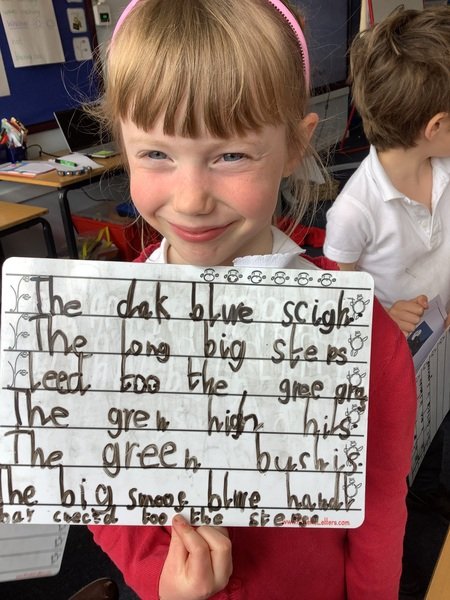 The dak blue scigh
The long big steps
leed too the gree gras
The gren high hils
The green bushis
The big smoos blue handl
hat cnectd too the steps